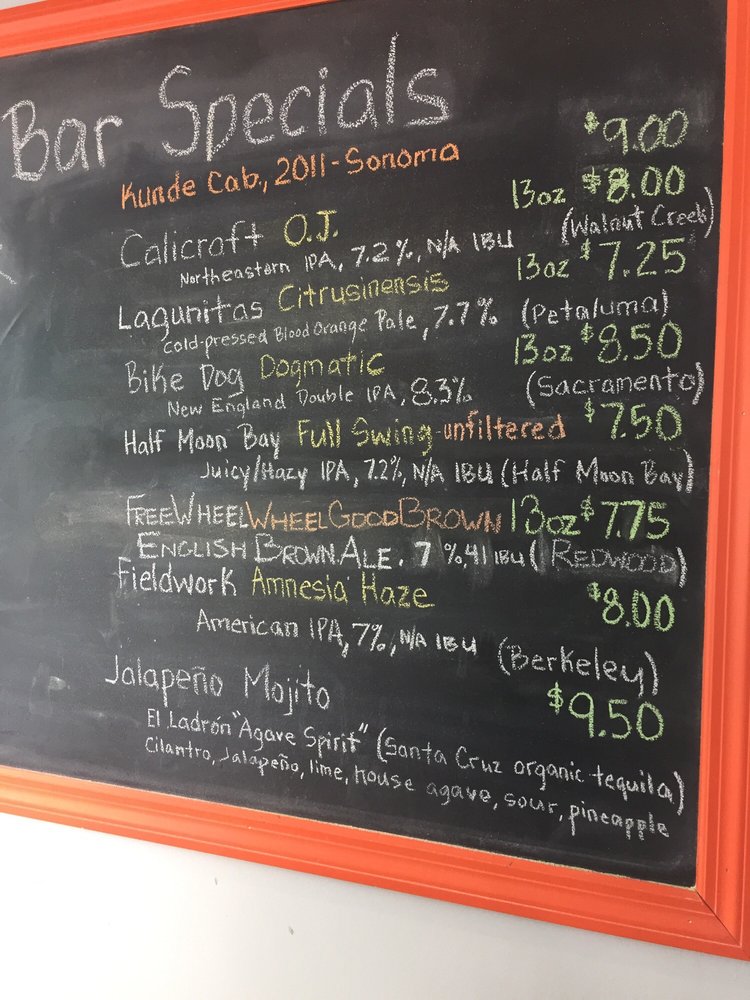 Bar Specials
Kunde Cab, 2011 - Sonoma $9.00
Calicraft O.J. 13oz $8.00
Northeastern IPA, 7.2%, N/A IBU (Walnut Creek)
Lagunitas Citrusinensis 13oz $7.25
cold-pressed Blood Orange Pale, 7.7% (Petaluma)
Bike Dog Dogmatic 13oz $8.50
New England Double IPA, 8.3% (Sacramento)
Half Moon Bay Full Swing-unfiltered $7.50
Juicy/Hazy IPA, 7.2%, N/A IBU (Half Moon Bay)
FREEWHEEL WHEEL GOOD BROWN 13oz $7.75
ENGLISH BROWN ALE. 7%, 41 IBU (REDWOOD)
Fieldwork Amnesia Haze $8.00
American IPA, 7%, N/A IBU (Berkeley)
Jalapeño Mojito $9.50
El Ladrón "Agave Spirit" (Santa Cruz organic tequila)
Cilantro, Jalapeño, lime, house agave, sour, pineapple